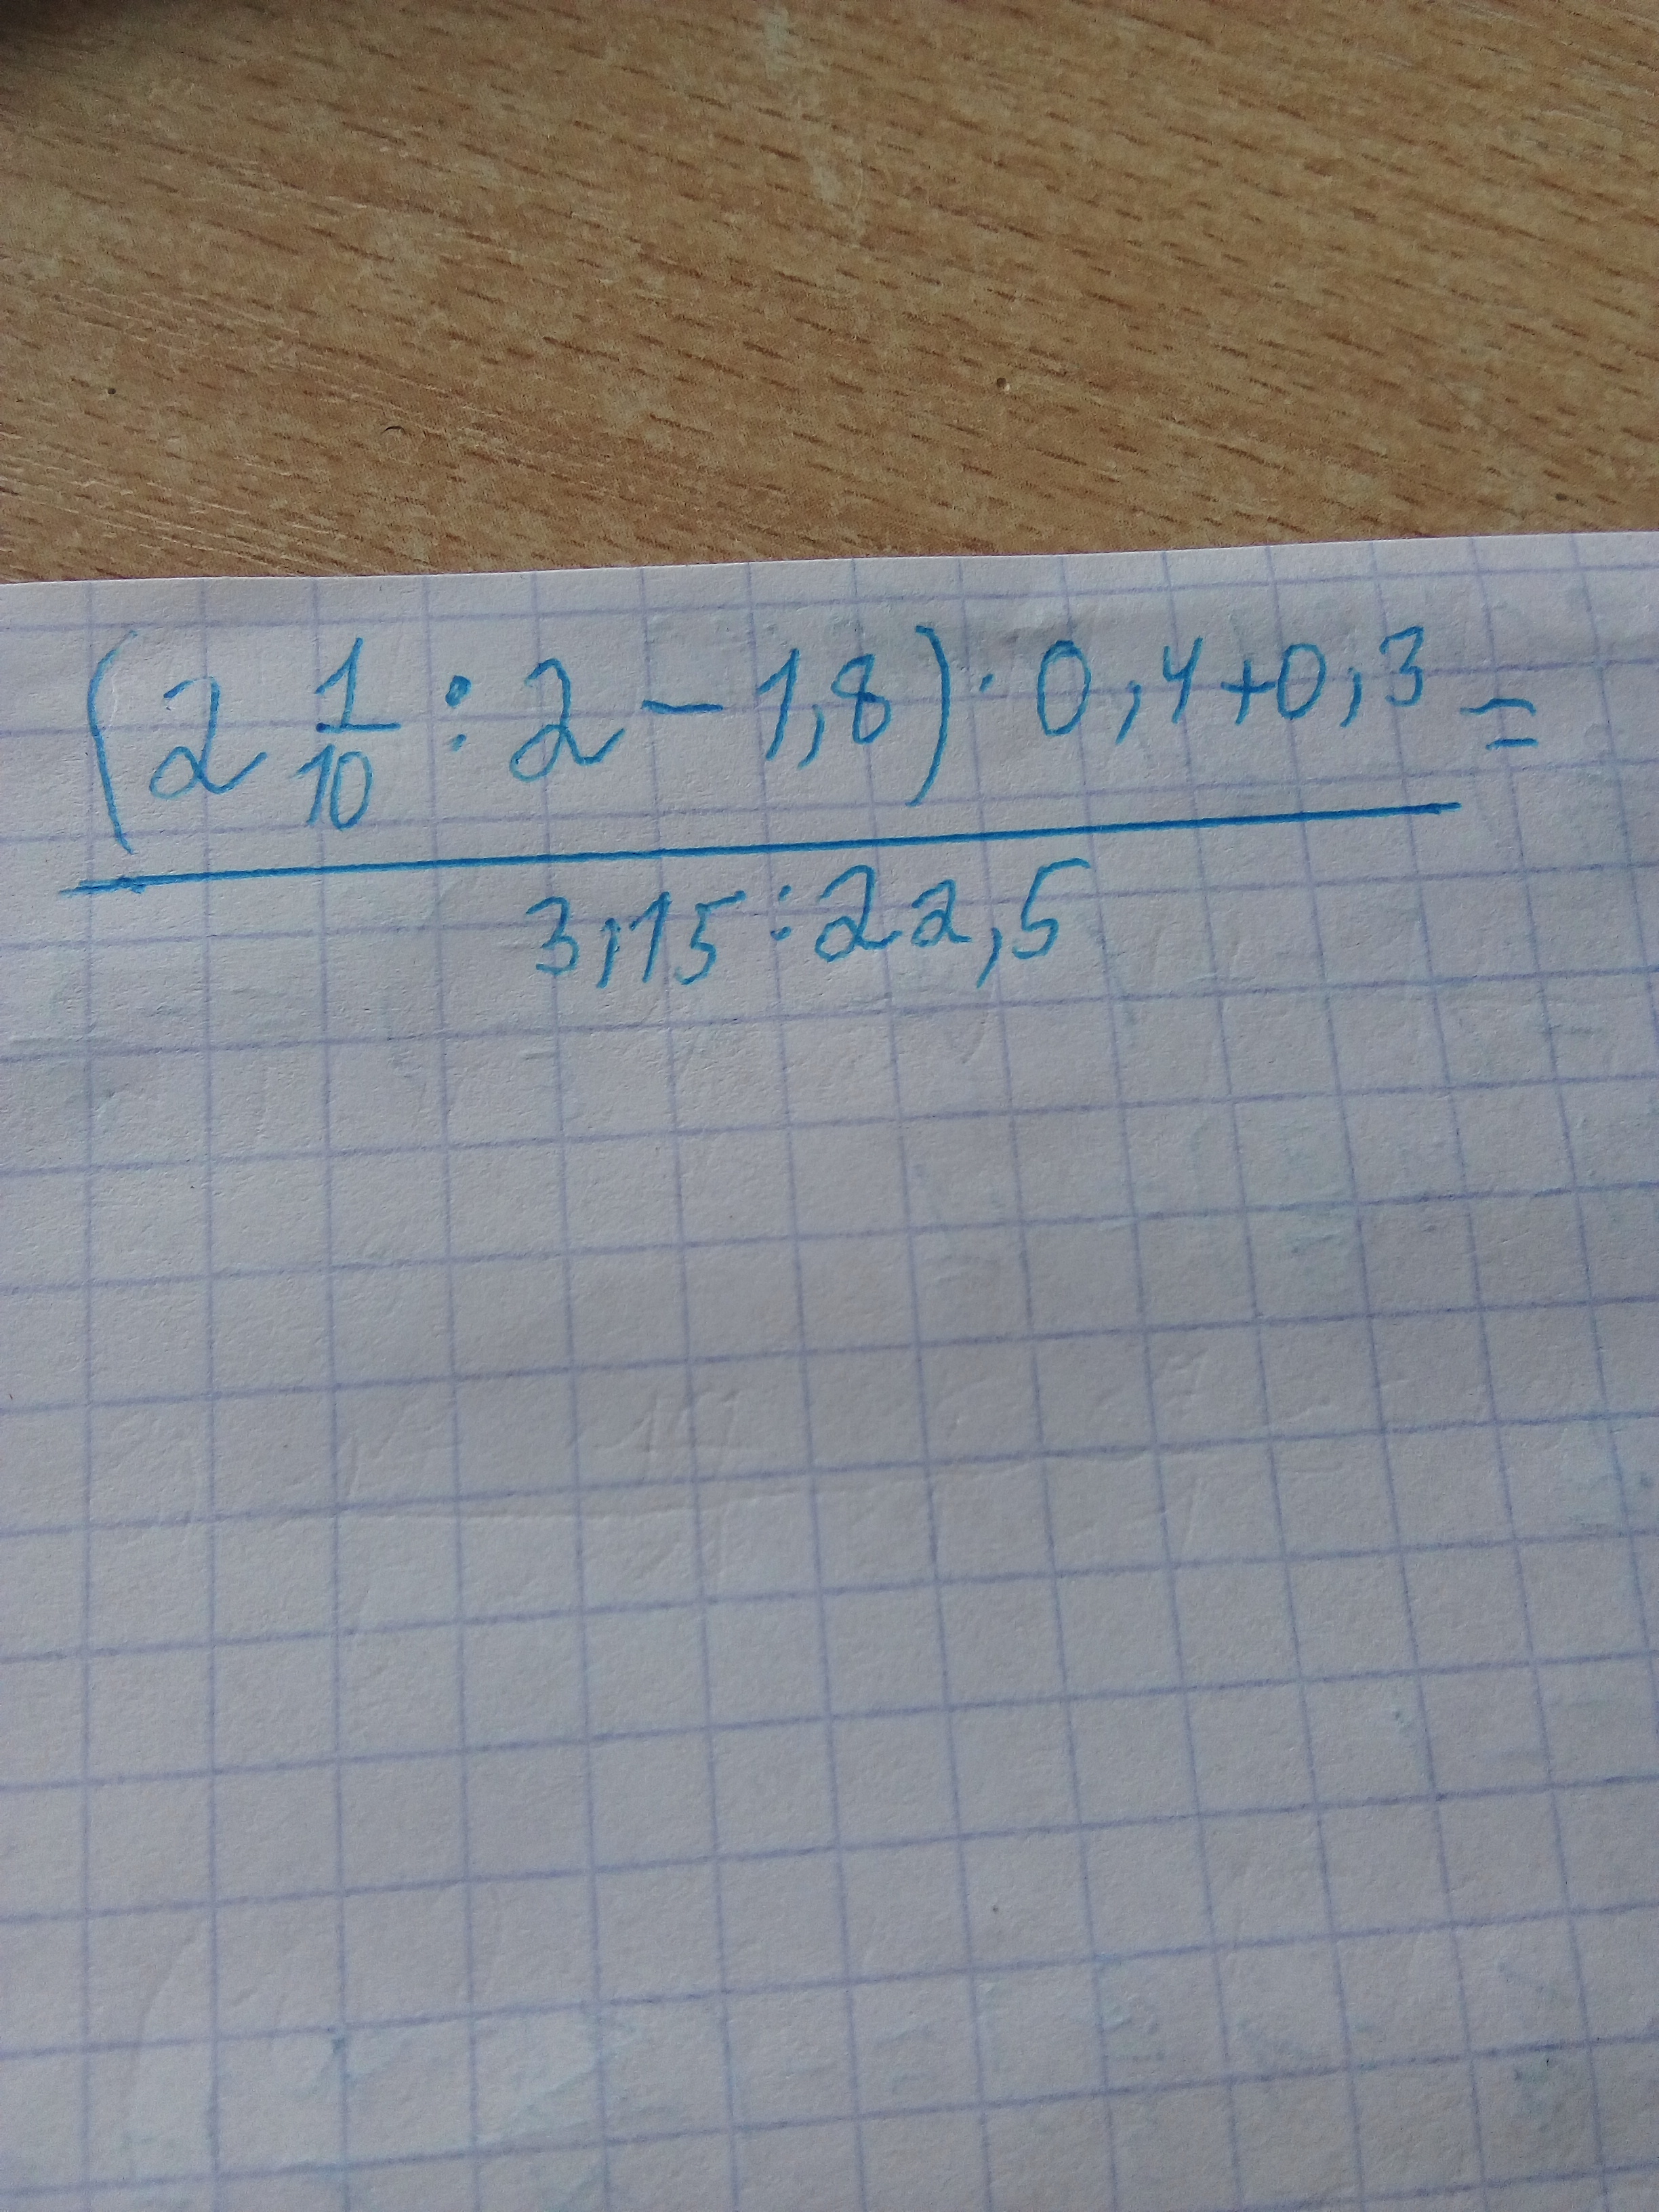 (2 1/10 : 2 - 1,8) · 0,4+0,3 =
3,15 : 22,5